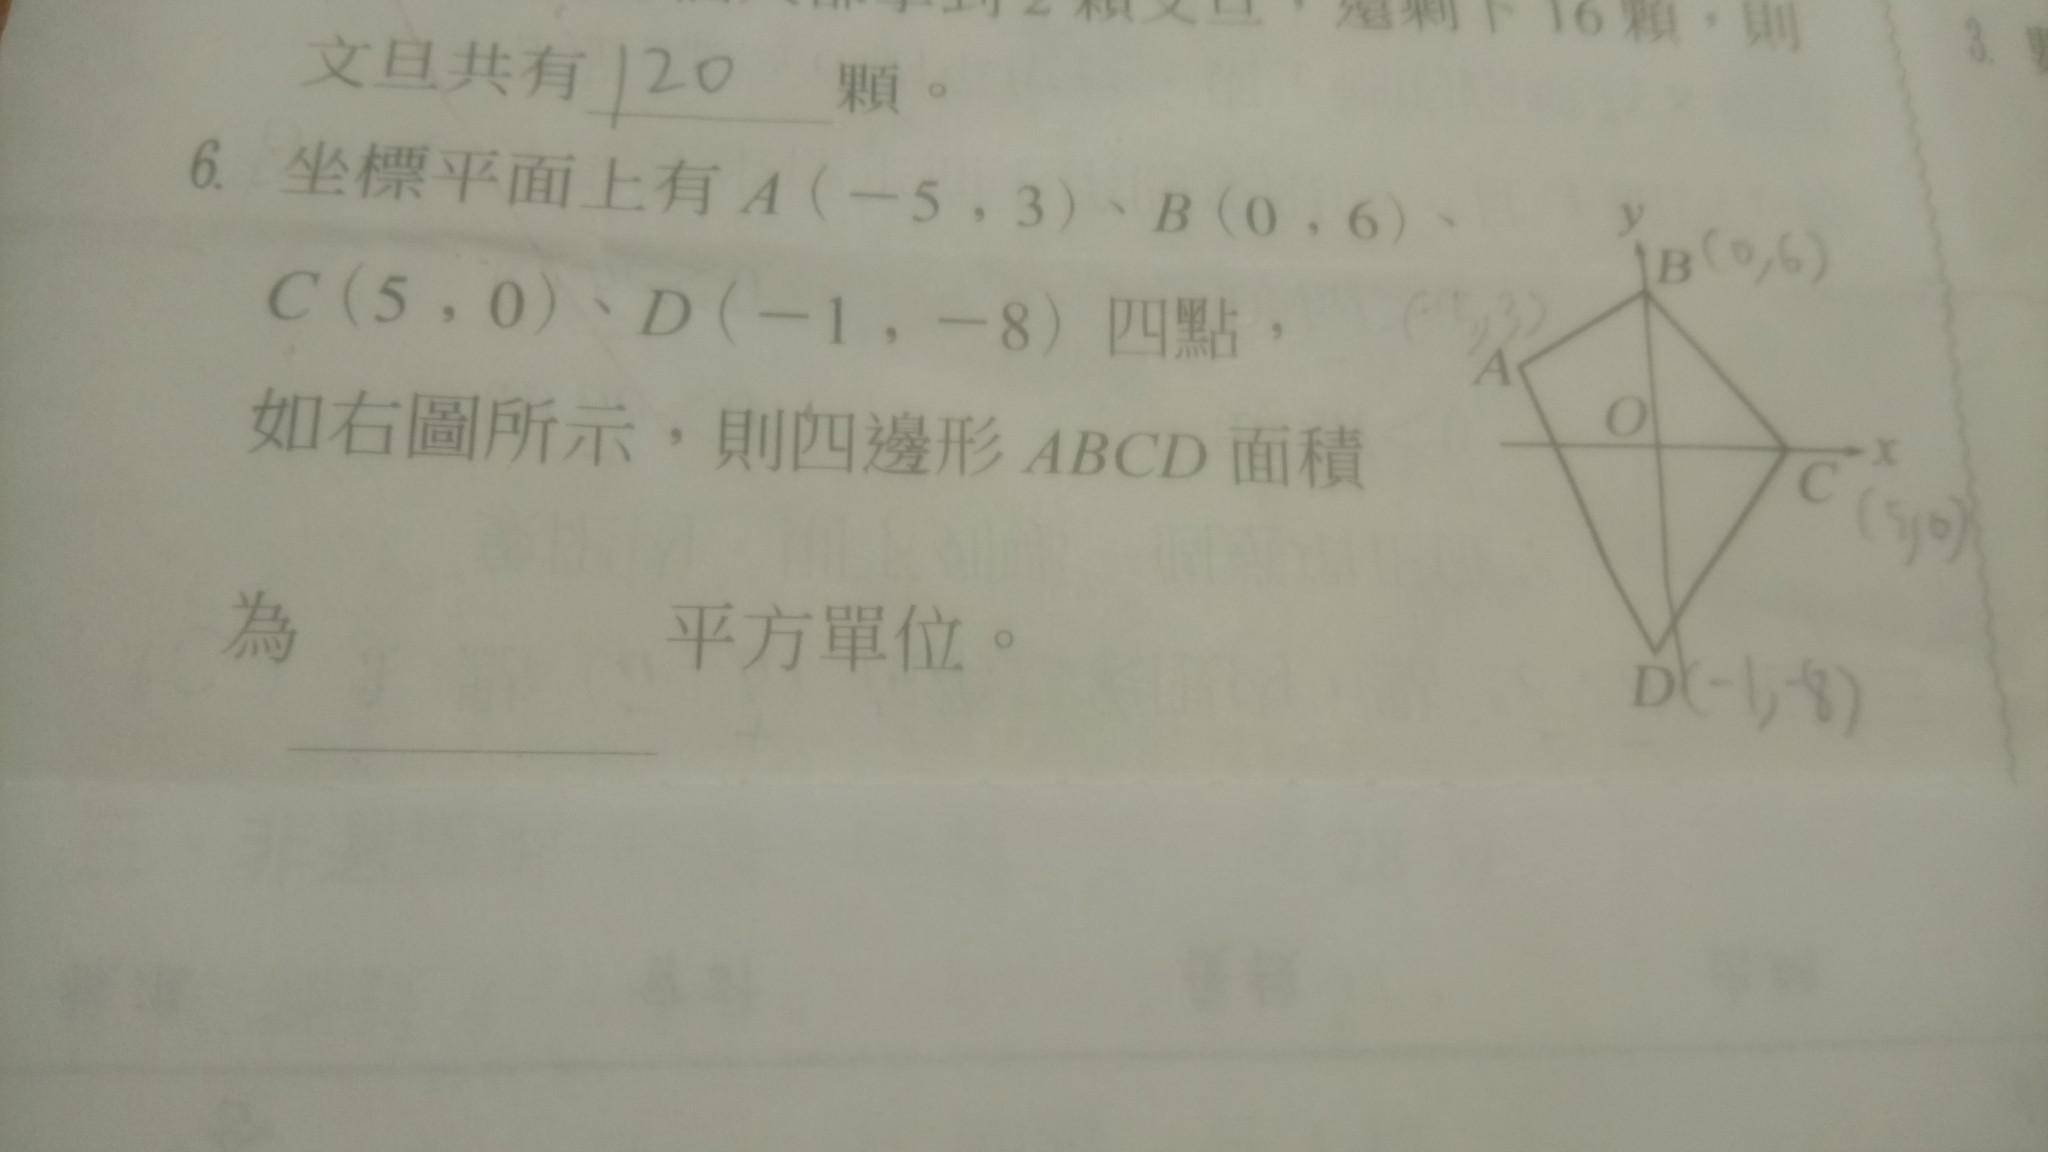 到2顆文旦,還剩下16顆,則
文旦共有 120 顆。
3.
6. 坐標平面上有 A(-5,3)、B(0,6)、
C(5,0)、D(-1,-8) 四點,
如右圖所示,則四邊形 ABCD 面積
為 平方單位。
y
B(0,6)
A
O
x
C
(5,0)
D(-1,-8)